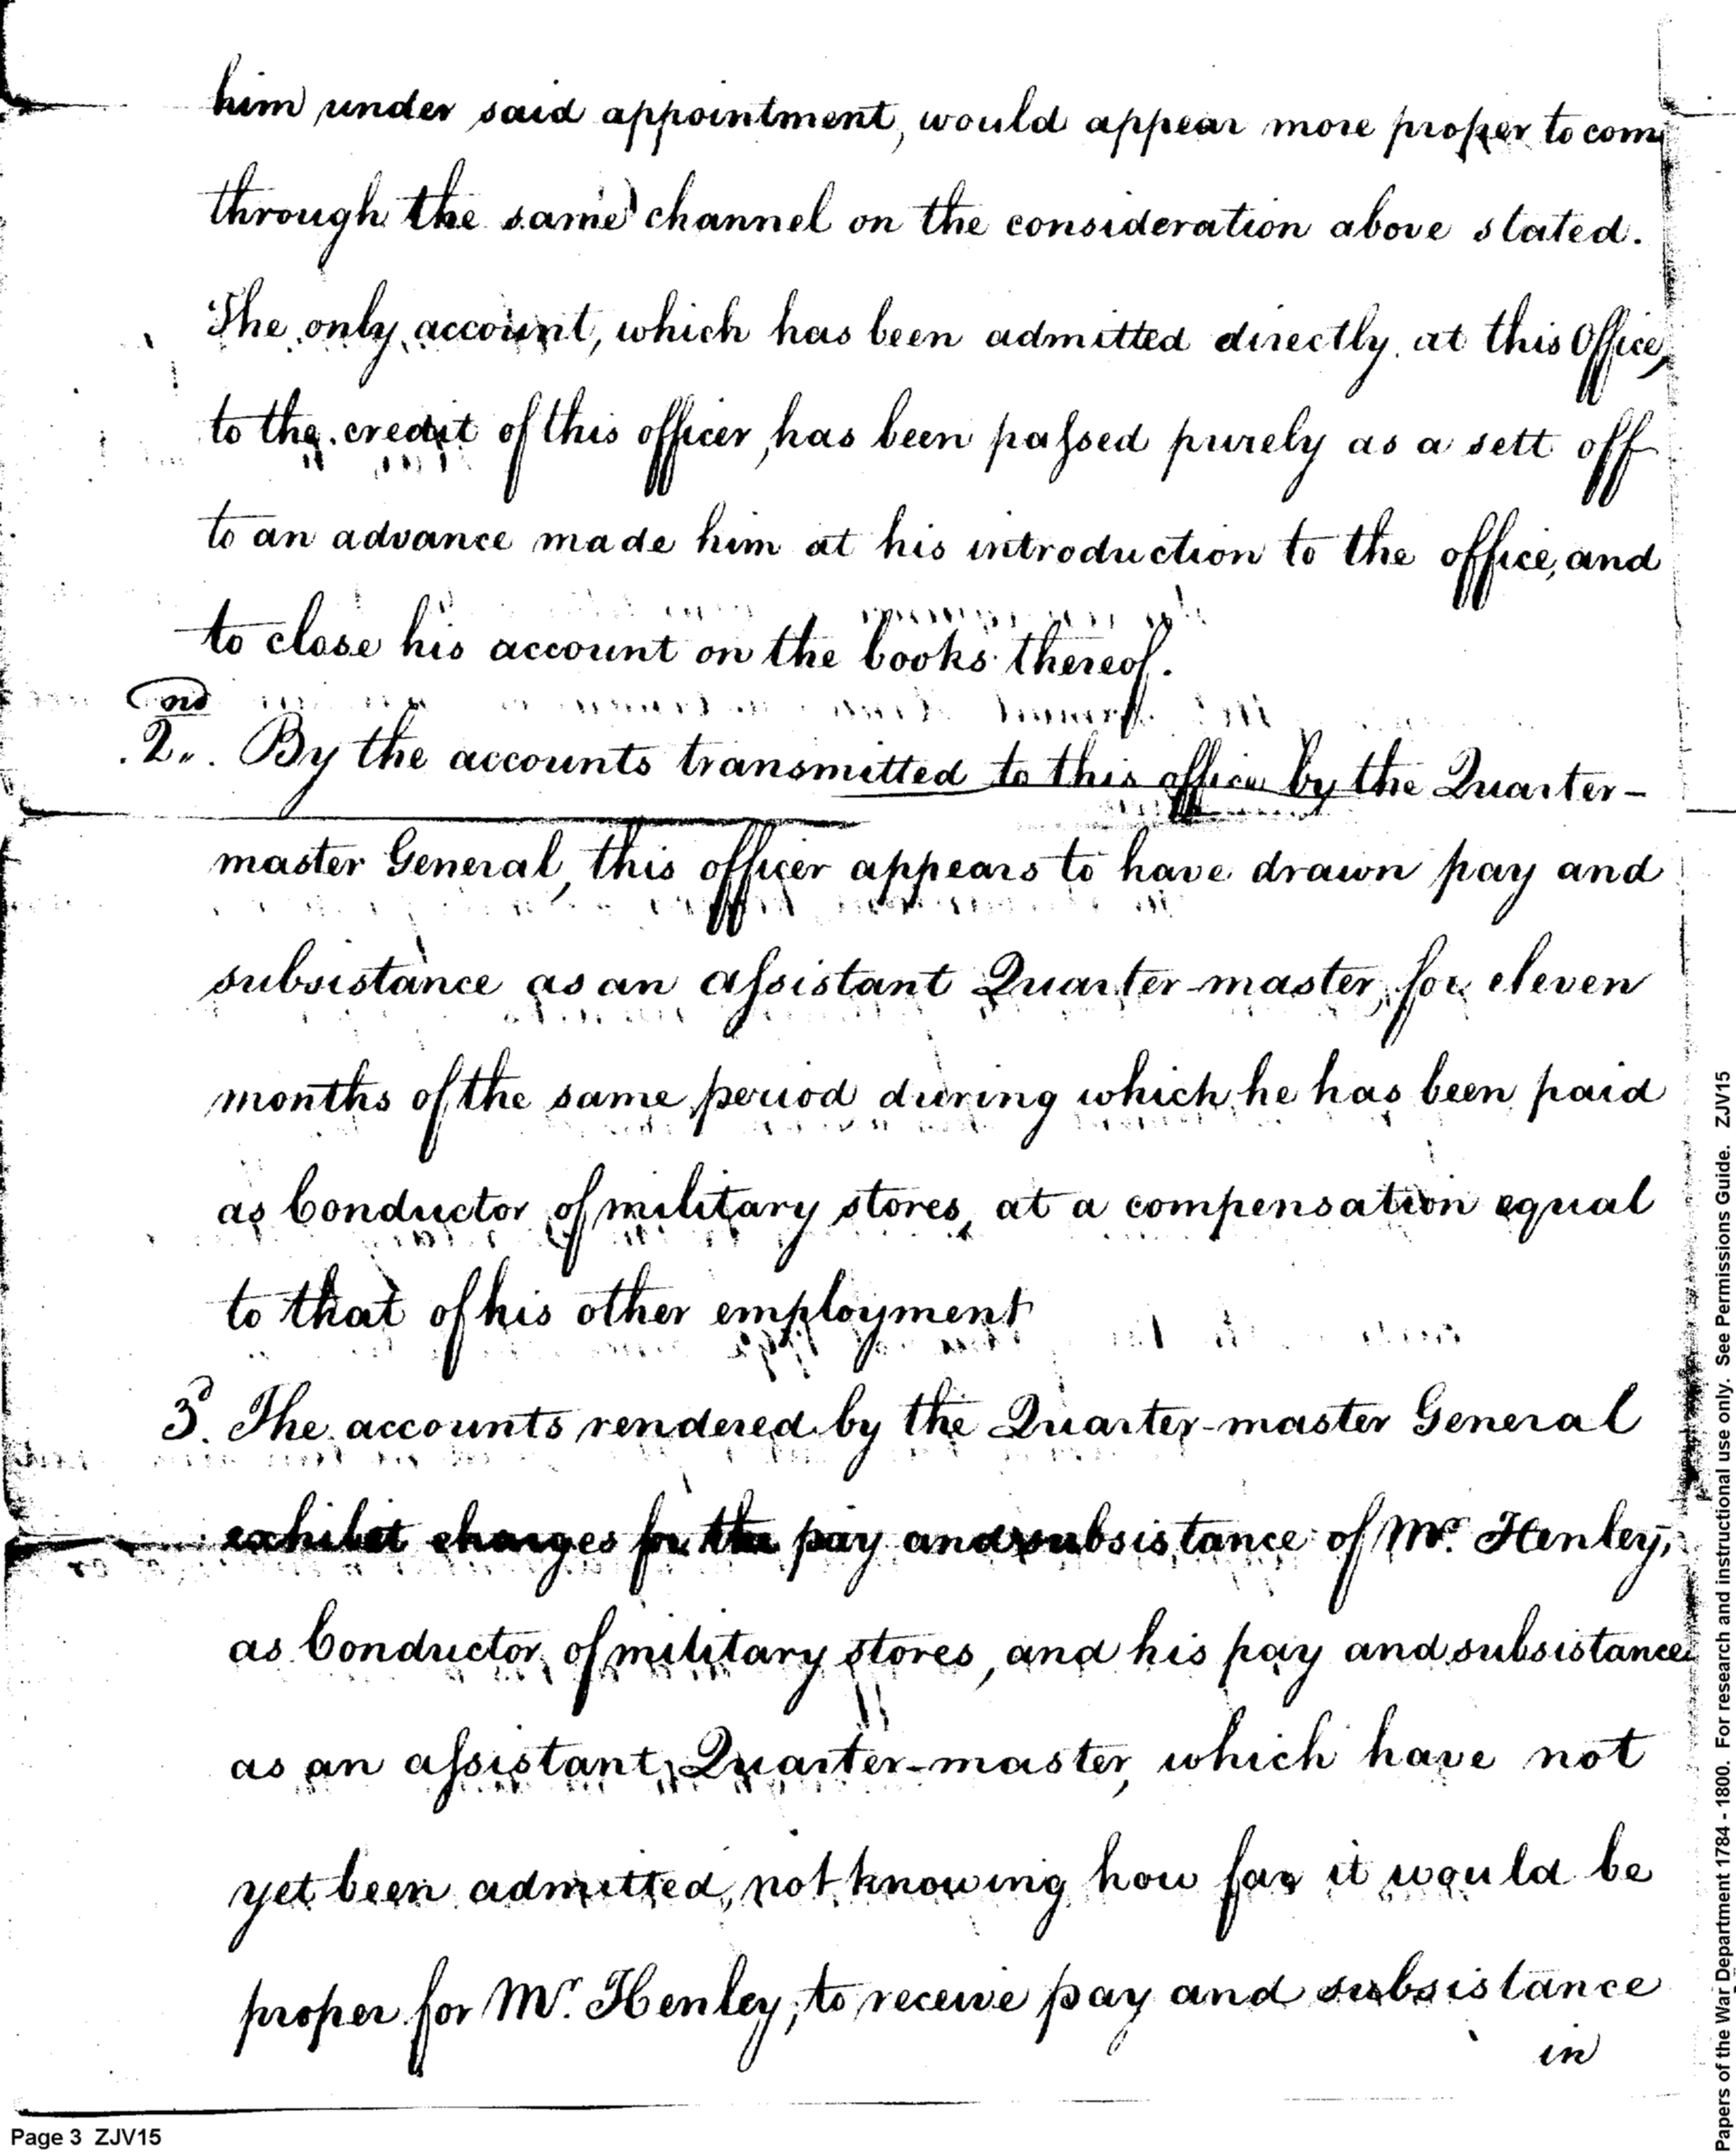 him under said appointment, would appear more proper to come
through the same channel on the consideration above stated.
The only account, which has been admitted directly at this Office,
to the credit of this officer, has been passed purely as a sett off
to an advance made him at his introduction to the office, and
to close his account on the books thereof.
2nd. By the accounts transmitted to this office by the Quarter-
master General, this officer appears to have drawn pay and
subsistance as an assistant Quarter-master, for eleven
months of the same period during which he has been paid
as Conductor of military stores, at a compensation equal
to that of his other employment
3d. The accounts rendered by the Quarter-master General
exhibit charges for the pay and subsistance of Mr. Henley,
as Conductor of military stores, and his pay and subsistance
as an assistant Quarter-master, which have not
yet been admitted, not knowing how far it would be
proper for Mr. Henley, to receive pay and subsistance
in
Page 3 ZJV15
Papers of the War Department 1784 - 1800. For research and instructional use only. See Permissions Guide. ZJV15